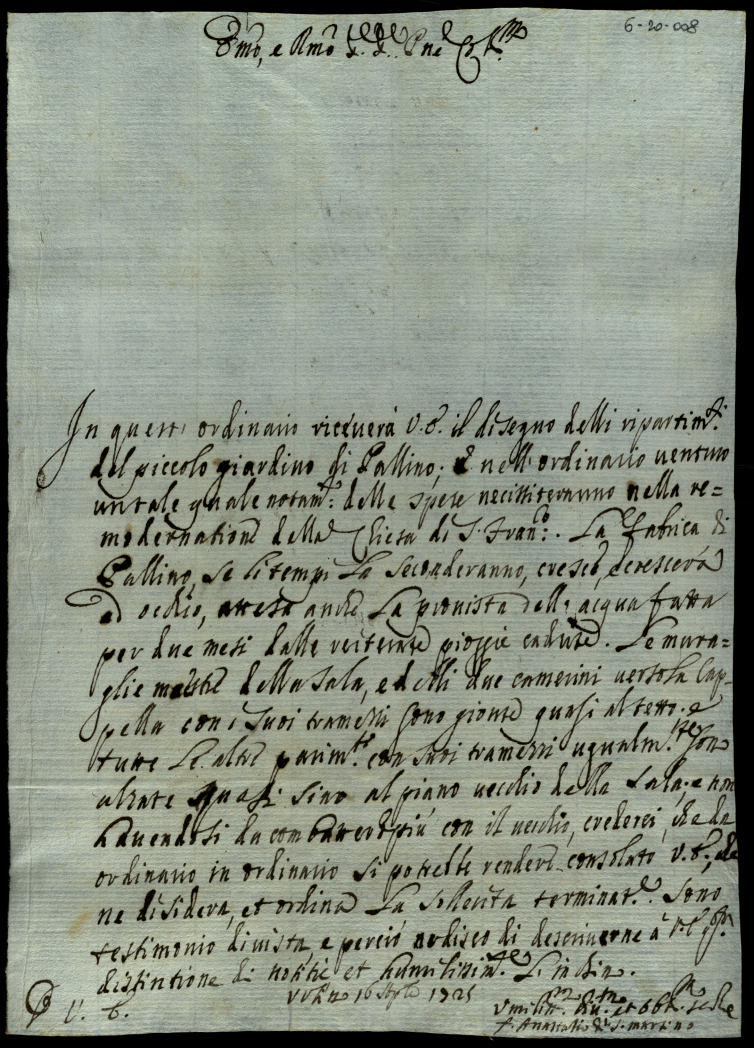 6-20-008
Emo, e Rmo Sig.re Sig.re Pne
In questo ordinario riceuerà V.E. il disegno delli ripartim.ti
del piccolo giardino di Pallino; e nell'ordinario venturo
un tale quale notam.to delle spese necessiteranno nella re=
modernatione della Chiesa di S. Fran.co. La fabrica di
Pallino, se li tempi la seconderanno, cresce, e crescerà
ad occhio, attesa anche la prouista dell'acqua fatta
per due mesi dalle reiterate pioggie cadute. Le mura=
glie maestre della Sala, e delli due camerini verso la Cap=
pella con i suoi tramezzi sono gionte quasi al tetto, e
tutte le altre parim.te con suoi tramezzi ugualm.te son
alzate quasi sino al piano vecchio della Sala; e non
hauendosi da combattere più con il vecchio, crederei, che da
ordinario in ordinario si potrebbe rendere consolato V.E., che
ne disidera, et ordina la sollecita terminat.e. Sono
testimonio di vista e perciò ardisco di descriuerne à V.E.
distintione di notitie et humilissim.te l'inchino.
V. E.
16 1725
Umiliss.
f. Anastasio di S. Martino